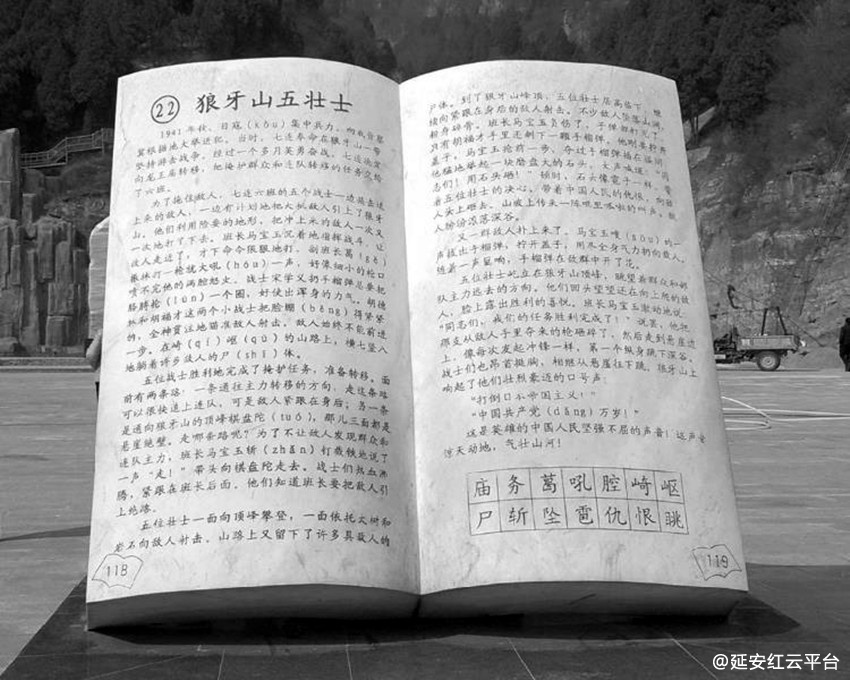 22 狼牙山五壮士
1941年秋，日寇(kòu)集中兵力，向我晋察
冀根据地大举进犯。当时，七连奉命在狼牙山一带
坚持游击战争。经过一个多月英勇奋战，七连决定
向龙王庙转移，把掩护群众和连队转移的任务交给
了六班。
为了拖住敌人，七连六班的五个战士一边痛击追
上来的敌人，一边有计划地把大批敌人引上了狼牙
山。他们利用险要的地形，把冲上来的敌人一次又
一次地打了下去。班长马宝玉沉着地指挥战斗，让
敌人走近了，才下命令狠狠地打。副班长葛(gě)
振林打一枪就大吼(hǒu)一声，好像细小的枪口
喷不完他的满腔怒火。战士宋学义扔手榴弹总要把
胳膊抡(lūn)一个圈，好使出浑身的力气。胡德
林和胡福才这两个小战士把脸绷(běng)得紧紧
的，全神贯注地瞄准敌人射击。敌人始终不能前进
一步。在崎(qí)岖(qū)的山路上，横七竖八
地躺着许多敌人的尸(shī)体。
五位战士胜利地完成了掩护任务，准备转移。面
前有两条路：一条通往主力转移的方向，走这条路
可以很快追上连队，可是敌人紧跟在身后；另一条
是通向狼牙山的顶峰棋盘陀(tuó)，那儿三面都是
悬崖绝壁。走哪条路呢？为了不让敌人发现群众和
连队主力，班长马宝玉斩(zhǎn)钉截铁地说了
一声“走！”带头向棋盘陀走去。战士们热血沸
腾，紧跟在班长后面。他们知道班长要把敌人引
上绝路。
五位壮士一面向顶峰攀登，一面依托大树和
岩石向敌人射击。山路上又留下了许多具敌人的
118
尸体。到了狼牙山峰顶，五位壮士居高临下，继
续向紧跟在身后的敌人射击。不少敌人坠落山涧，
粉身碎骨。班长马宝玉负伤了，子弹都打完了，
只有胡福才手里还剩下一颗手榴弹，他刚要拧开
盖子，马宝玉抢前一步，夺过手榴弹插在腰间，
他猛地举起一块磨盘大的石头，大声喊道：“同
志们！用石头砸！”顿时，石头像雹子一样，带
着五位壮士的决心，带着中国人民的仇恨，向敌
人头上砸去。山坡上传来一阵叽里呱啦的叫声，敌
人纷纷滚落深谷。
又一群敌人扑上来了。马宝玉嗖(sōu)的一
声拔出手榴弹，拧开盖子，用尽全身气力扔向敌人。
随着一声巨响，手榴弹在敌群中开了花。
五位壮士屹立在狼牙山顶峰，眺望着群众和部
队主力远去的方向。他们回头望望还在向上爬的敌
人，脸上露出胜利的喜悦。班长马宝玉激动地说：
“同志们，我们的任务胜利完成了！”说罢，他把
那支从敌人手里夺来的枪砸碎了，然后走到悬崖边
上，像每次发起冲锋一样，第一个纵身跳下深谷。
战士们也昂首挺胸，相继从悬崖往下跳。狼牙山上
响起了他们壮烈豪迈的口号声：
“打倒日本帝国主义！”
“中国共产党(dǎng)万岁！”
这是英雄的中国人民坚强不屈的声音！这声音
惊天动地，气壮山河！
庙务葛吼腔崎岖
尸斩坠雹仇恨眺
119
@延安红云平台